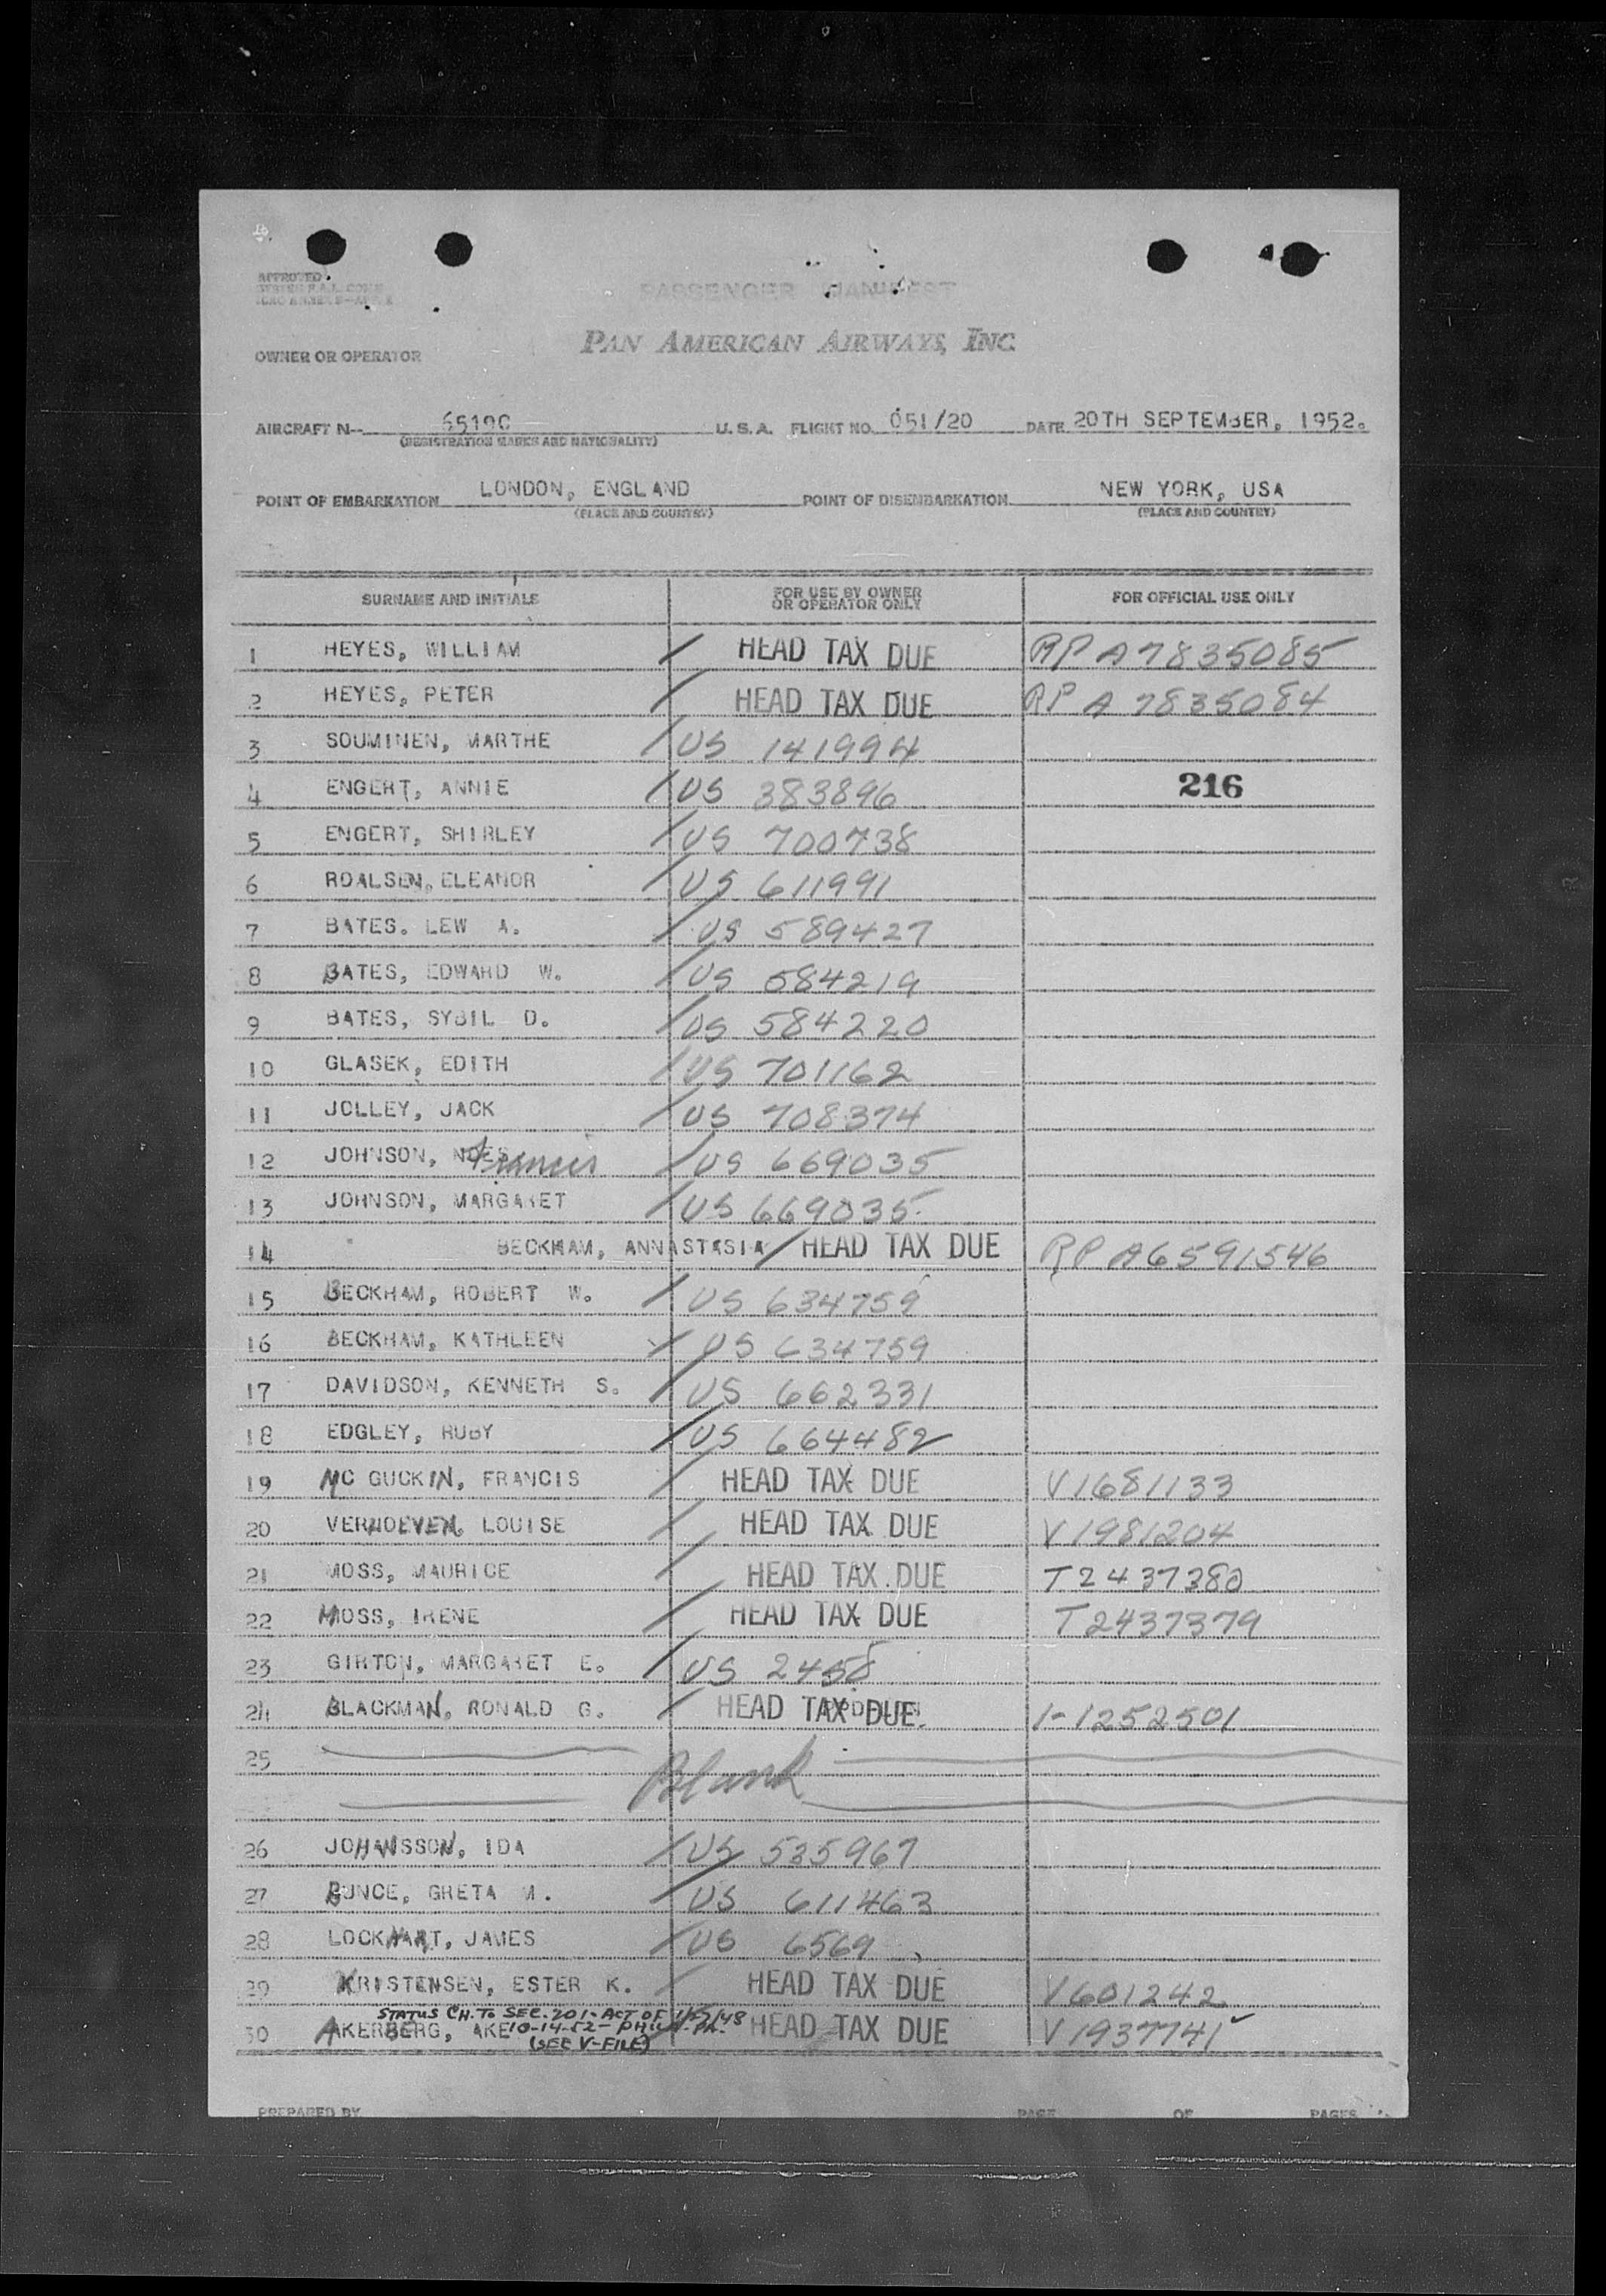 APPROVED
PASSENGER MANIFEST
PAN AMERICAN AIRWAYS, INC.
OWNER OR OPERATOR
AIRCRAFT N-- 6519C U.S.A. FLIGHT NO. 051/20 DATE 20TH SEPTEMBER, 1952.
(REGISTRATION MARKS AND NATIONALITY)
POINT OF EMBARKATION LONDON, ENGLAND POINT OF DISEMBARKATION NEW YORK, USA
(PLACE AND COUNTRY) (PLACE AND COUNTRY)
SURNAME AND INITIALS FOR USE BY OWNER OR OPERATOR ONLY FOR OFFICIAL USE ONLY
1 HEYES, WILLIAM HEAD TAX DUE RP A7835085
2 HEYES, PETER HEAD TAX DUE RP A 7835084
3 SOUMINEN, MARTHE US 141994
4 ENGERT, ANNIE US 383896 216
5 ENGERT, SHIRLEY US 700738
6 ROALSEN, ELEANOR US 611991
7 BATES. LEW A. US 589427
8 BATES, EDWARD W. US 584219
9 BATES, SYBIL D. US 584220
10 GLASEK, EDITH US 701162
11 JOLLEY, JACK US 708374
12 JOHNSON, Francis US 669035
13 JOHNSON, MARGARET US 669035
14 BECKHAM, ANNASTASIA HEAD TAX DUE RP A6591546
15 BECKHAM, ROBERT W. US 634759
16 BECKHAM, KATHLEEN US 634759
17 DAVIDSON, KENNETH S. US 662331
18 EDGLEY, RUBY US 664482
19 MC GUCKIN, FRANCIS HEAD TAX DUE V1681133
20 VERHOEVEN, LOUISE HEAD TAX DUE V1981204
21 MOSS, MAURICE HEAD TAX DUE T2437380
22 MOSS, IRENE HEAD TAX DUE T2437379
23 GIRTON, MARGARET E. US 2458
24 BLACKMAN, RONALD G. HEAD TAX DUE 1-1252501
25 Blank
26 JOHANSSON, IDA US 535967
27 BUNCE, GRETA M. US 611463
28 LOCKHART, JAMES US 6569
29 KRISTENSEN, ESTER K. HEAD TAX DUE V601242
STATUS CH. TO SEC. 201- ACT OF 1/27/48
30 AKERBERG, AKE 10-14-52- PHILA. PA. HEAD TAX DUE V1937741
(SEE V-FILE)
PREPARED BY PAGE OF PAGES